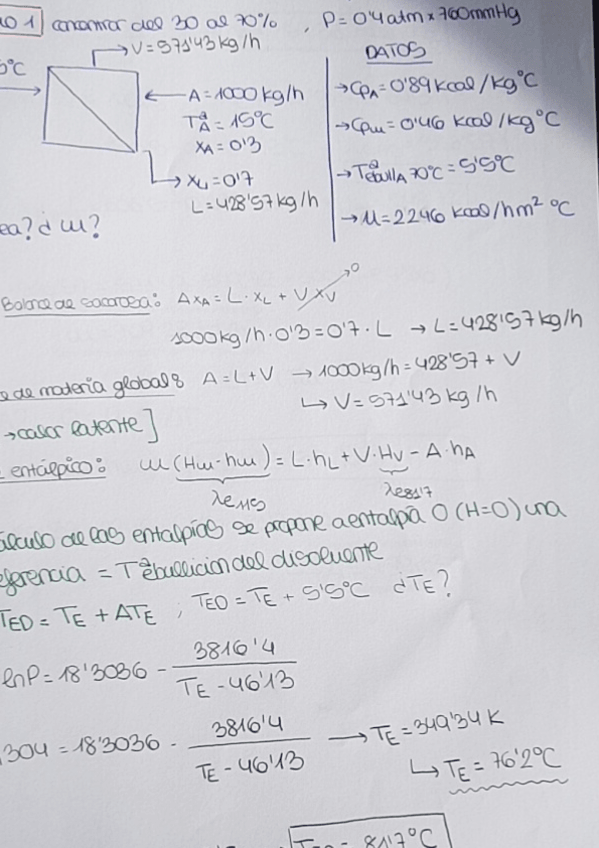 1 concentrar del 30 al 70% , P = 0'4 atm x 760mmHg
→ V = 571'43 kg/h
DATOS
°C
← A = 1000 kg/h
TªA = 15°C
xA = 0'3
→ xL = 0'7
L = 428'57 kg/h
→ CpA = 0'89 kcal/kg°C
→ Cpm = 0'46 kcal/kg°C
→ Tªebull A 70°C = 5'5°C
→ U = 2246 kcal/hm² °C
ea? ¿ w?
Balance de sacarosa: A xA = L · xL + V xV → 0
1000 kg/h · 0'3 = 0'7 · L → L = 428'57 kg/h
de materia global: A = L + V → 1000 kg/h = 428'57 + V
↳ V = 571'43 kg/h
→ calor latente]
entálpico: w (Hw - hw) = L · hL + V · Hv - A · hA
λe 115
λe 81'7
álculo de las entalpías se propone a entalpía 0 (H=0) una
ferencia = Tª ebullición del disolvente
TED = TE + ΔTE ; TED = TE + 5'5°C ¿TE?
ln P = 18'3036 - 3816'4 / TE - 46'13
304 = 18'3036 - 3816'4 / TE - 46'13 → TE = 349'34 K
↳ TE = 76'2°C
81'7°C